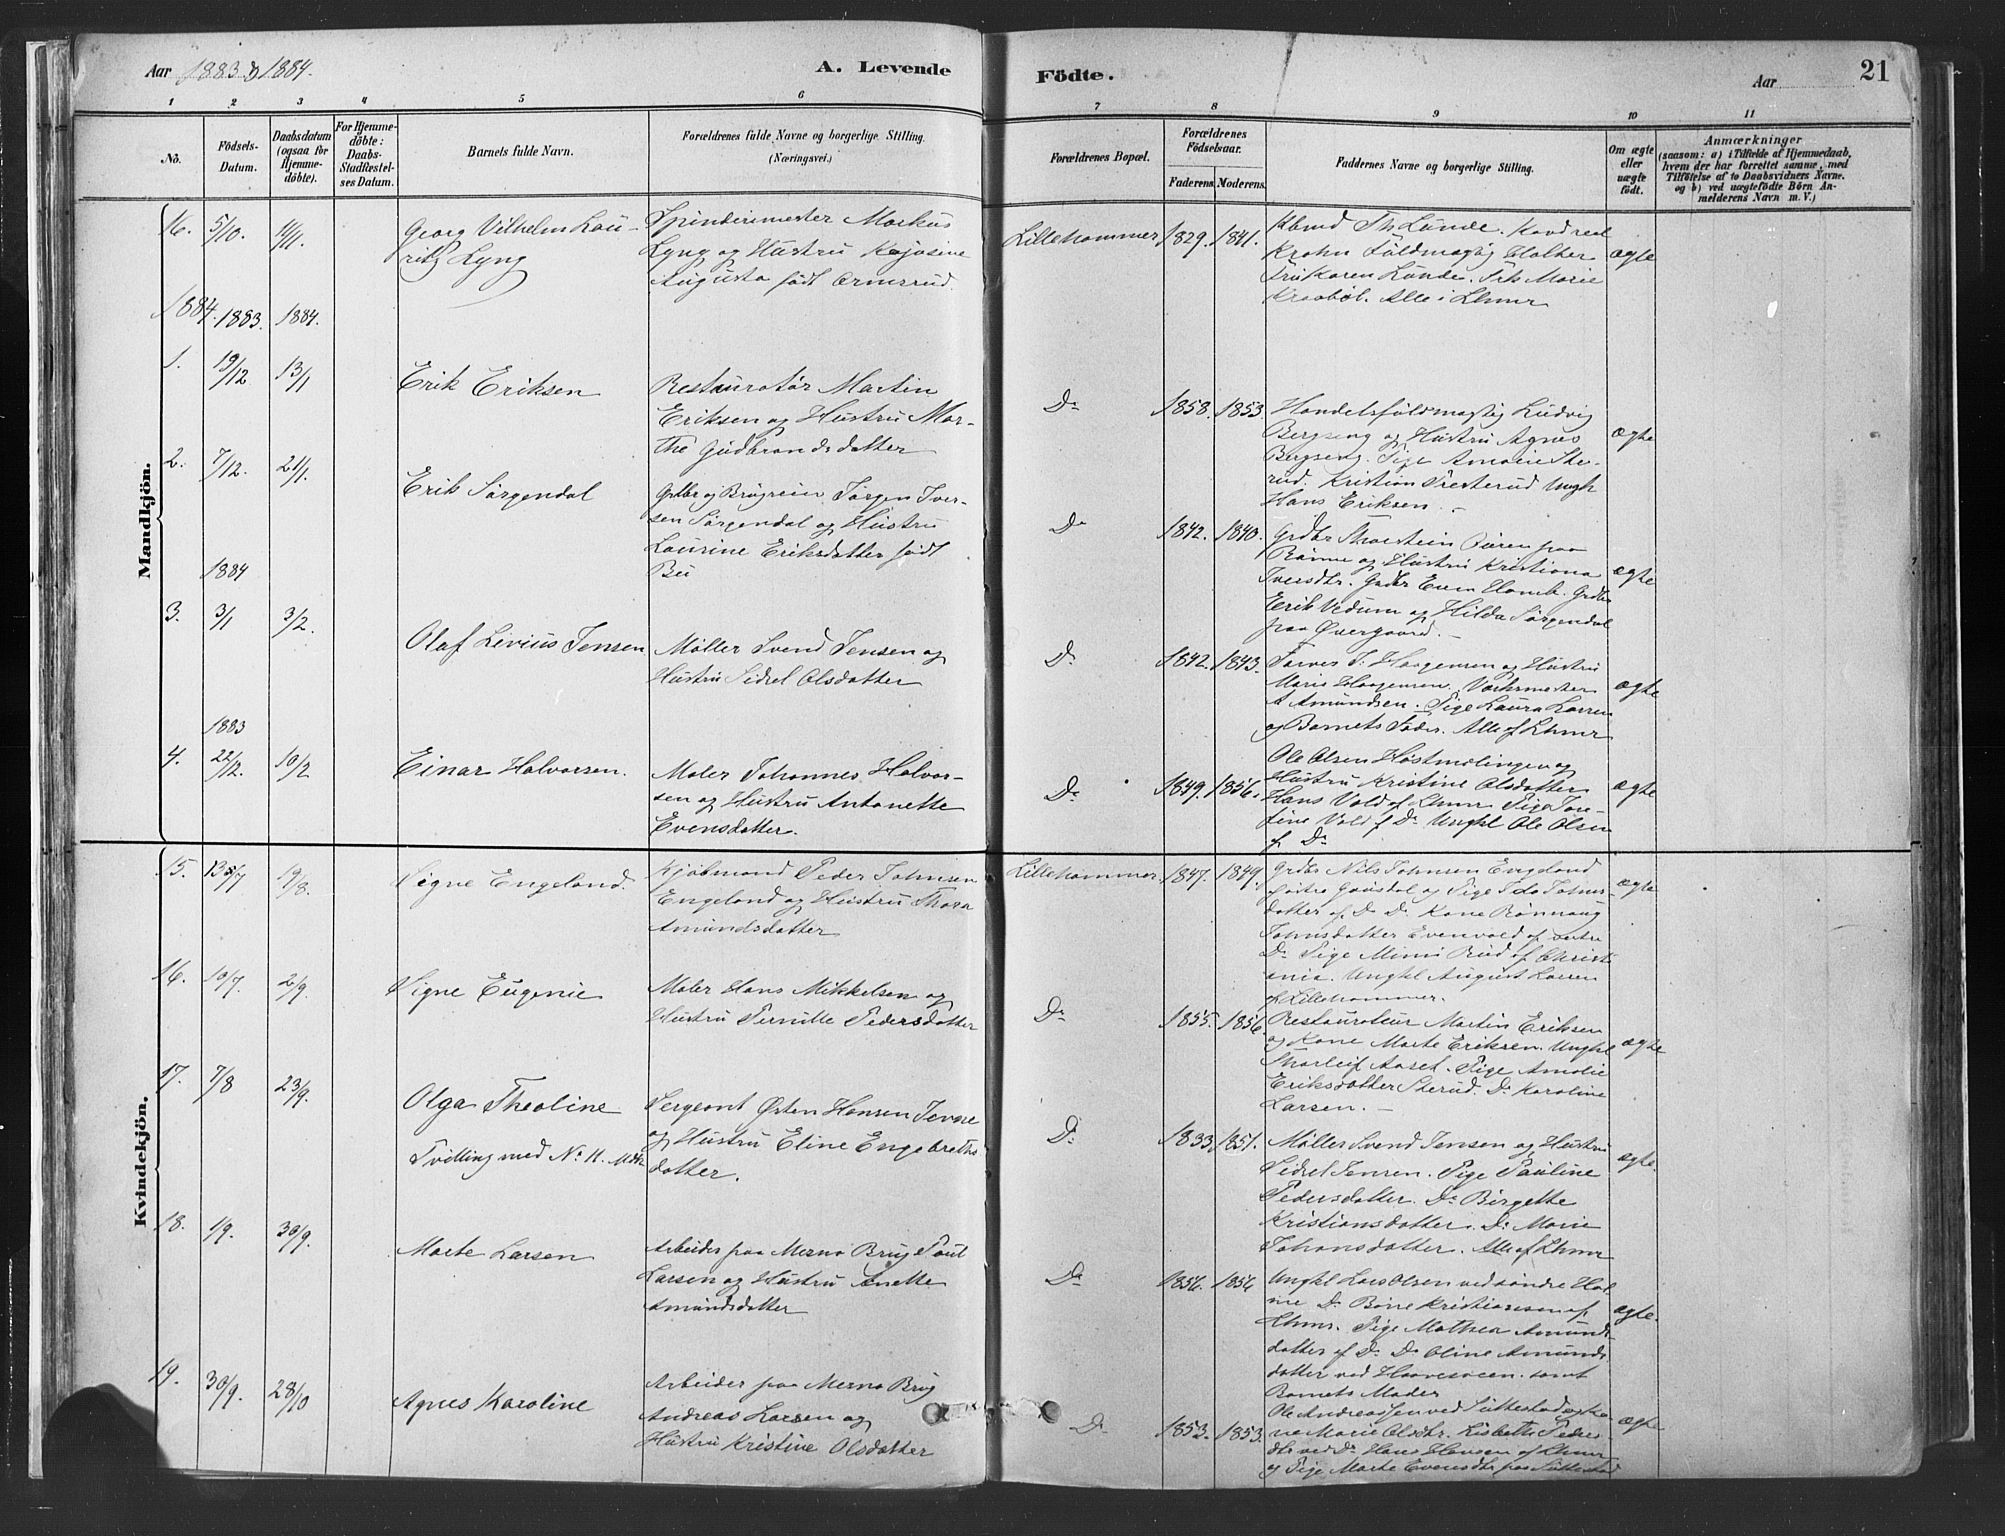 Aar 1883 & 1884.
A. Levende
Födte.
Aar
21
1 2 3 4 5 6 7 8 9 10 11
No.
Födsels-
Datum.
Daabsdatum
(ogsaa for
Hjemme-
döbte).
For Hjemme-
döbte:
Daabs-
Stadfæstel-
ses Datum.
Barnets fulde Navn.
Forældrenes fulde Navne og borgerlige Stilling.
(Næringsvei.)
Forældrenes Bopæl.
Forældrenes
Födselsaar.
Faderens. Moderens.
Faddernes Navne og borgerlige Stilling.
Om ægte
eller
uægte
födt.
Anmærkninger
(saasom: a) i Tilfælde af Hjemmedaab,
hvem der har forrettet samme, med
Tilföielse af to Daabsvidners Navne.
og b) ved uægtefödte Börn An-
melderens Navn m. V.)
Mandkjön.
16. 5/10. 11/11.
Georg Vilhelm Lau-
ritz Lyng
Spinderimester Markus
Lyng og Hustru Kajasine
Augusta født Ormsrud.
Lillehammer 1829. 1841.
Th Lunde.
Krohn Fuldmægtig Holter
Fru Karen Lunde. Frk Marie
Kraabøl. Alle i Lhmr
ægte
1884. 1883. 1884.
1. 19/12. 13/1
Erik Eriksen
Restauratør Martin
Eriksen og Hustru Mar-
the Gudbrandsdatter
Do 1858. 1853.
Handelsfuldmægtig Ludvig
Bergseng og Hustru Agnes
Bergseng. Pige Amalie Ste-
rud. Kristian Presterud Ungk
Hans Eriksen. -
ægte
2. 7/12. 21/1.
Erik Jørgendal
Grdbr og Brugseier Jørgen Iver-
sen Jørgendal og Hustru
Laurine Eriksdatter født
Bu
Do 1842. 1840.
Grdbr Thorstein Suren paa
Rønne og Hustru Kristiana
Iversdtr. Grdbr Even Homb. Grdbr
Erik Vedum og Hilda Jørgendal
paa Øvergaard. -
ægte
1884
3. 3/1 3/2.
Olaf Levius Jensen
Møller Svend Jensen og
Hustru Sidsel Olsdatter
Do 1842. 1843.
Farver J. Haagensen og Hustru
Marie Haagensen. Værksmester
A Amundsen. Pige Laura Larsen
og Barnets Fader. Alle af Lhmr
ægte
1883
4. 22/12. 10/2
Einar Halvorsen.
Maler Johannes Halvor-
sen og Hustru Antonette
Evensdatter.
Do 1849. 1856.
Ole Olsen Høstmælingen og
Hustru Kristine Olsdatter
Hans Vold af Lhmr Pige Jo-
sine Vold af Do Ungkl Ole Olsen
af Do
ægte
Kvindekjön.
15. 13/7 19/8.
Signe Engeland.
Kjøbmand Peder Johnsen
Engeland og Hustru Thora
Amundsdatter
Lillehammer. 1847. 1849.
Grdbr Nils Johnsen Engeland
østre Gausdal og Pige Ida Johns-
datter af Do Do Kone Rønnaug
Johnsdatter Evenvold af vestre
Do Pige Mimi Rud af Christi-
ania. Ungkl August Larsen
af Lillehammer.
ægte
16. 10/7. 2/9.
Signe Eugenie
Maler Hans Mikkelsen og
Hustru Pernille Pedersdatter
Do 1855. 1856.
Restaurateur Martin Eriksen
og Kone Marte Eriksen. Ungkl
Thorleif Aaset. Pige Amalie
Eriksdatter Sterud. Do Karoline
Larsen. -
ægte
17. 7/8 23/9.
Olga Theoline
Tvilling med No 11. Mdk
Sergeant Østen Hansen Jevne
og Hustru Eline Engebrets-
datter.
Do 1833. 1851.
Møller Svend Jensen og Hustru
Sidsel Jensen. Pige Pauline
Pedersdatter. Do Birgette
Kristiansdatter. Do Marie
Johansdatter. Alle af Lhmr
ægte.
18. 1/9. 30/9.
Marte Larsen
Arbeider paa Mesna Brug Poul
Larsen og Hustru Anette
Amundsdatter
Do 1856. 1856
Ungkl Lars Olsen ved søndre Ho-
ve Do Børre Kristiansen af
Lhmr. Pige Mathea Amunds-
datter af Do Do Oline Amunds-
datter ved Haaveskeen samt
Barnets Moder
ægte.
19. 30/9. 28/10
Agnes Karoline
Arbeider paa Mesna Brug
Andreas Larsen og
Hustru Kristine Olsdatter
Do 1853. 1853.
Ole Andreassen ved Suttestad og Ko-
ne Marie Olsdtr. Lisbeth Peders-
dtr ved Do Hans Hansen af Lhmr
og Pige Marte Evensdtr paa Suttestad
ægte